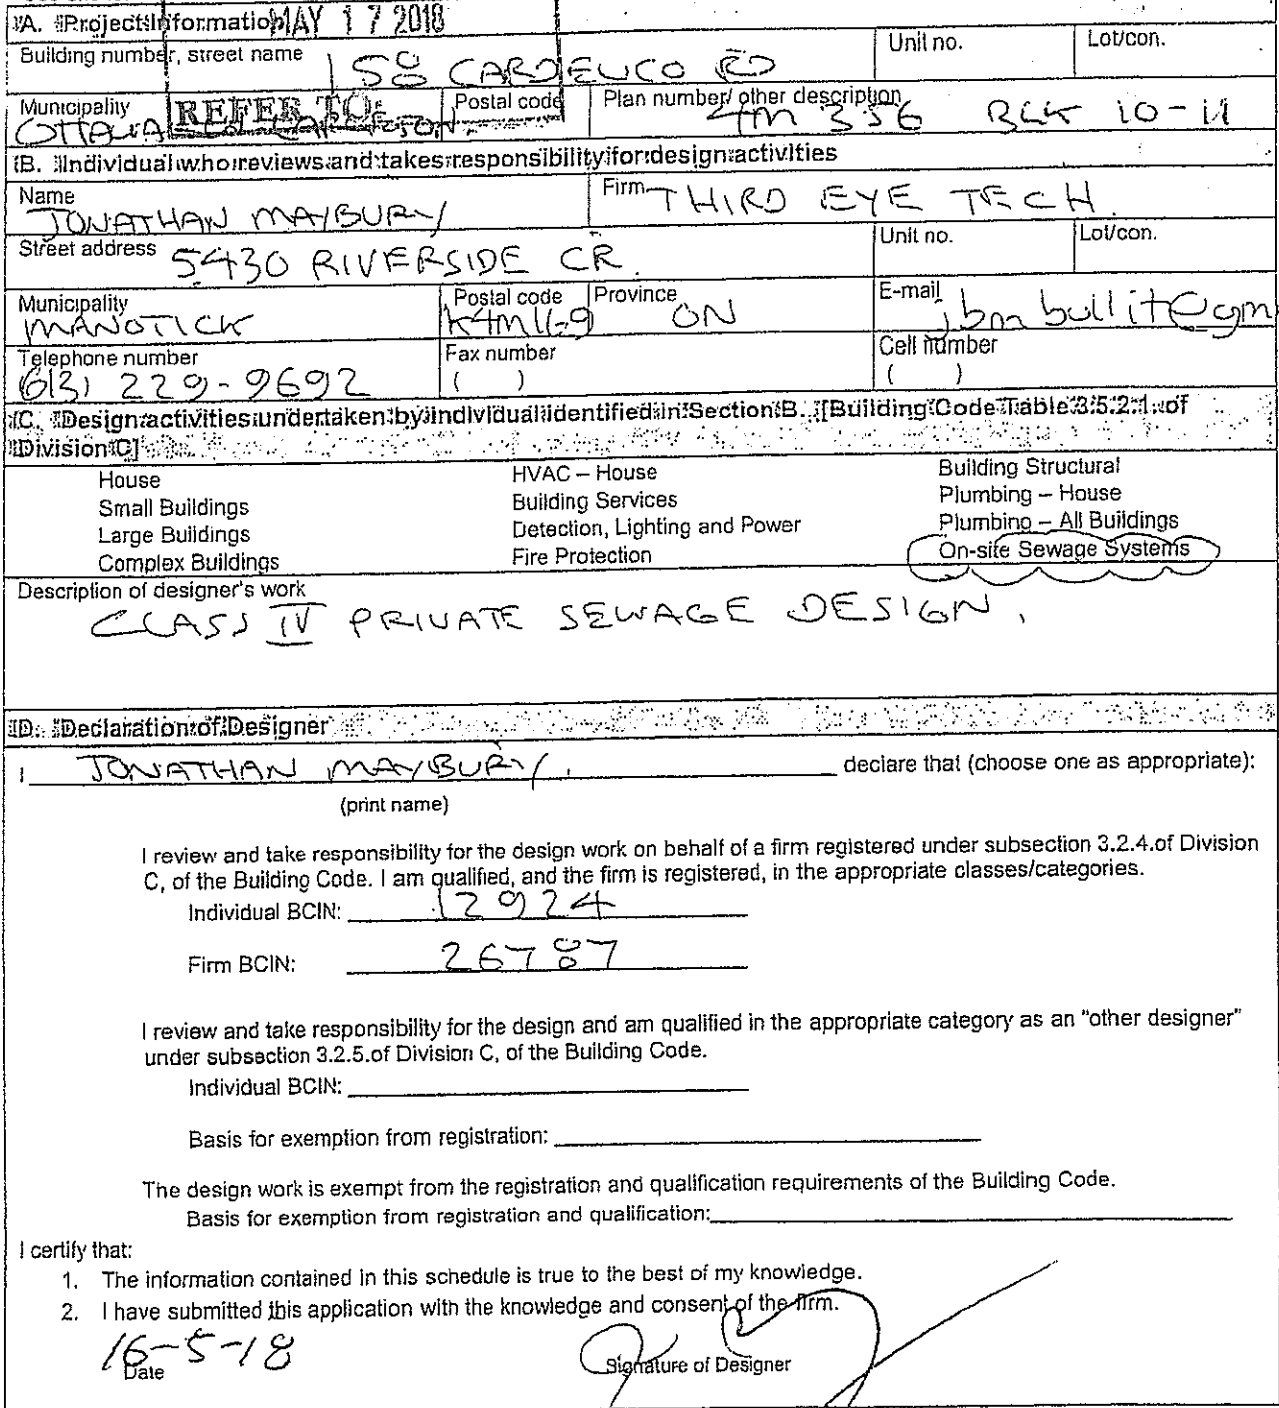 A. Project Information MAY 17 2018
Building number, street name 158 CARDEVCO RD Unit no. Lot/con.
Municipality REFER TO: Postal code Plan number/ other description
OTTAWA CARLETON 4M 356 BLK 10-11
B. Individual who reviews and takes responsibility for design activities
Name JONATHAN MAYBURY Firm THIRD EYE TECH.
Street address 5430 RIVERSIDE CR. Unit no. Lot/con.
Municipality Postal code Province E-mail
MANOTICK K4M 1G9 ON jbm bullit@gm
Telephone number Fax number Cell number
(613) 229-9692 ( ) ( )
C. Design activities undertaken by individual identified in Section B. [Building Code Table 3.5.2.1. of
Division C]
House HVAC – House Building Structural
Small Buildings Building Services Plumbing – House
Large Buildings Detection, Lighting and Power Plumbing – All Buildings
Complex Buildings Fire Protection On-site Sewage Systems
Description of designer's work
CLASS IV PRIVATE SEWAGE DESIGN.
D. Declaration of Designer
I JONATHAN MAYBURY. declare that (choose one as appropriate):
(print name)
I review and take responsibility for the design work on behalf of a firm registered under subsection 3.2.4.of Division
C, of the Building Code. I am qualified, and the firm is registered, in the appropriate classes/categories.
Individual BCIN: 12924
Firm BCIN: 26787
I review and take responsibility for the design and am qualified in the appropriate category as an "other designer"
under subsection 3.2.5.of Division C, of the Building Code.
Individual BCIN:
Basis for exemption from registration:
The design work is exempt from the registration and qualification requirements of the Building Code.
Basis for exemption from registration and qualification:
I certify that:
1. The information contained in this schedule is true to the best of my knowledge.
2. I have submitted this application with the knowledge and consent of the firm.
16-5-18
Date Signature of Designer